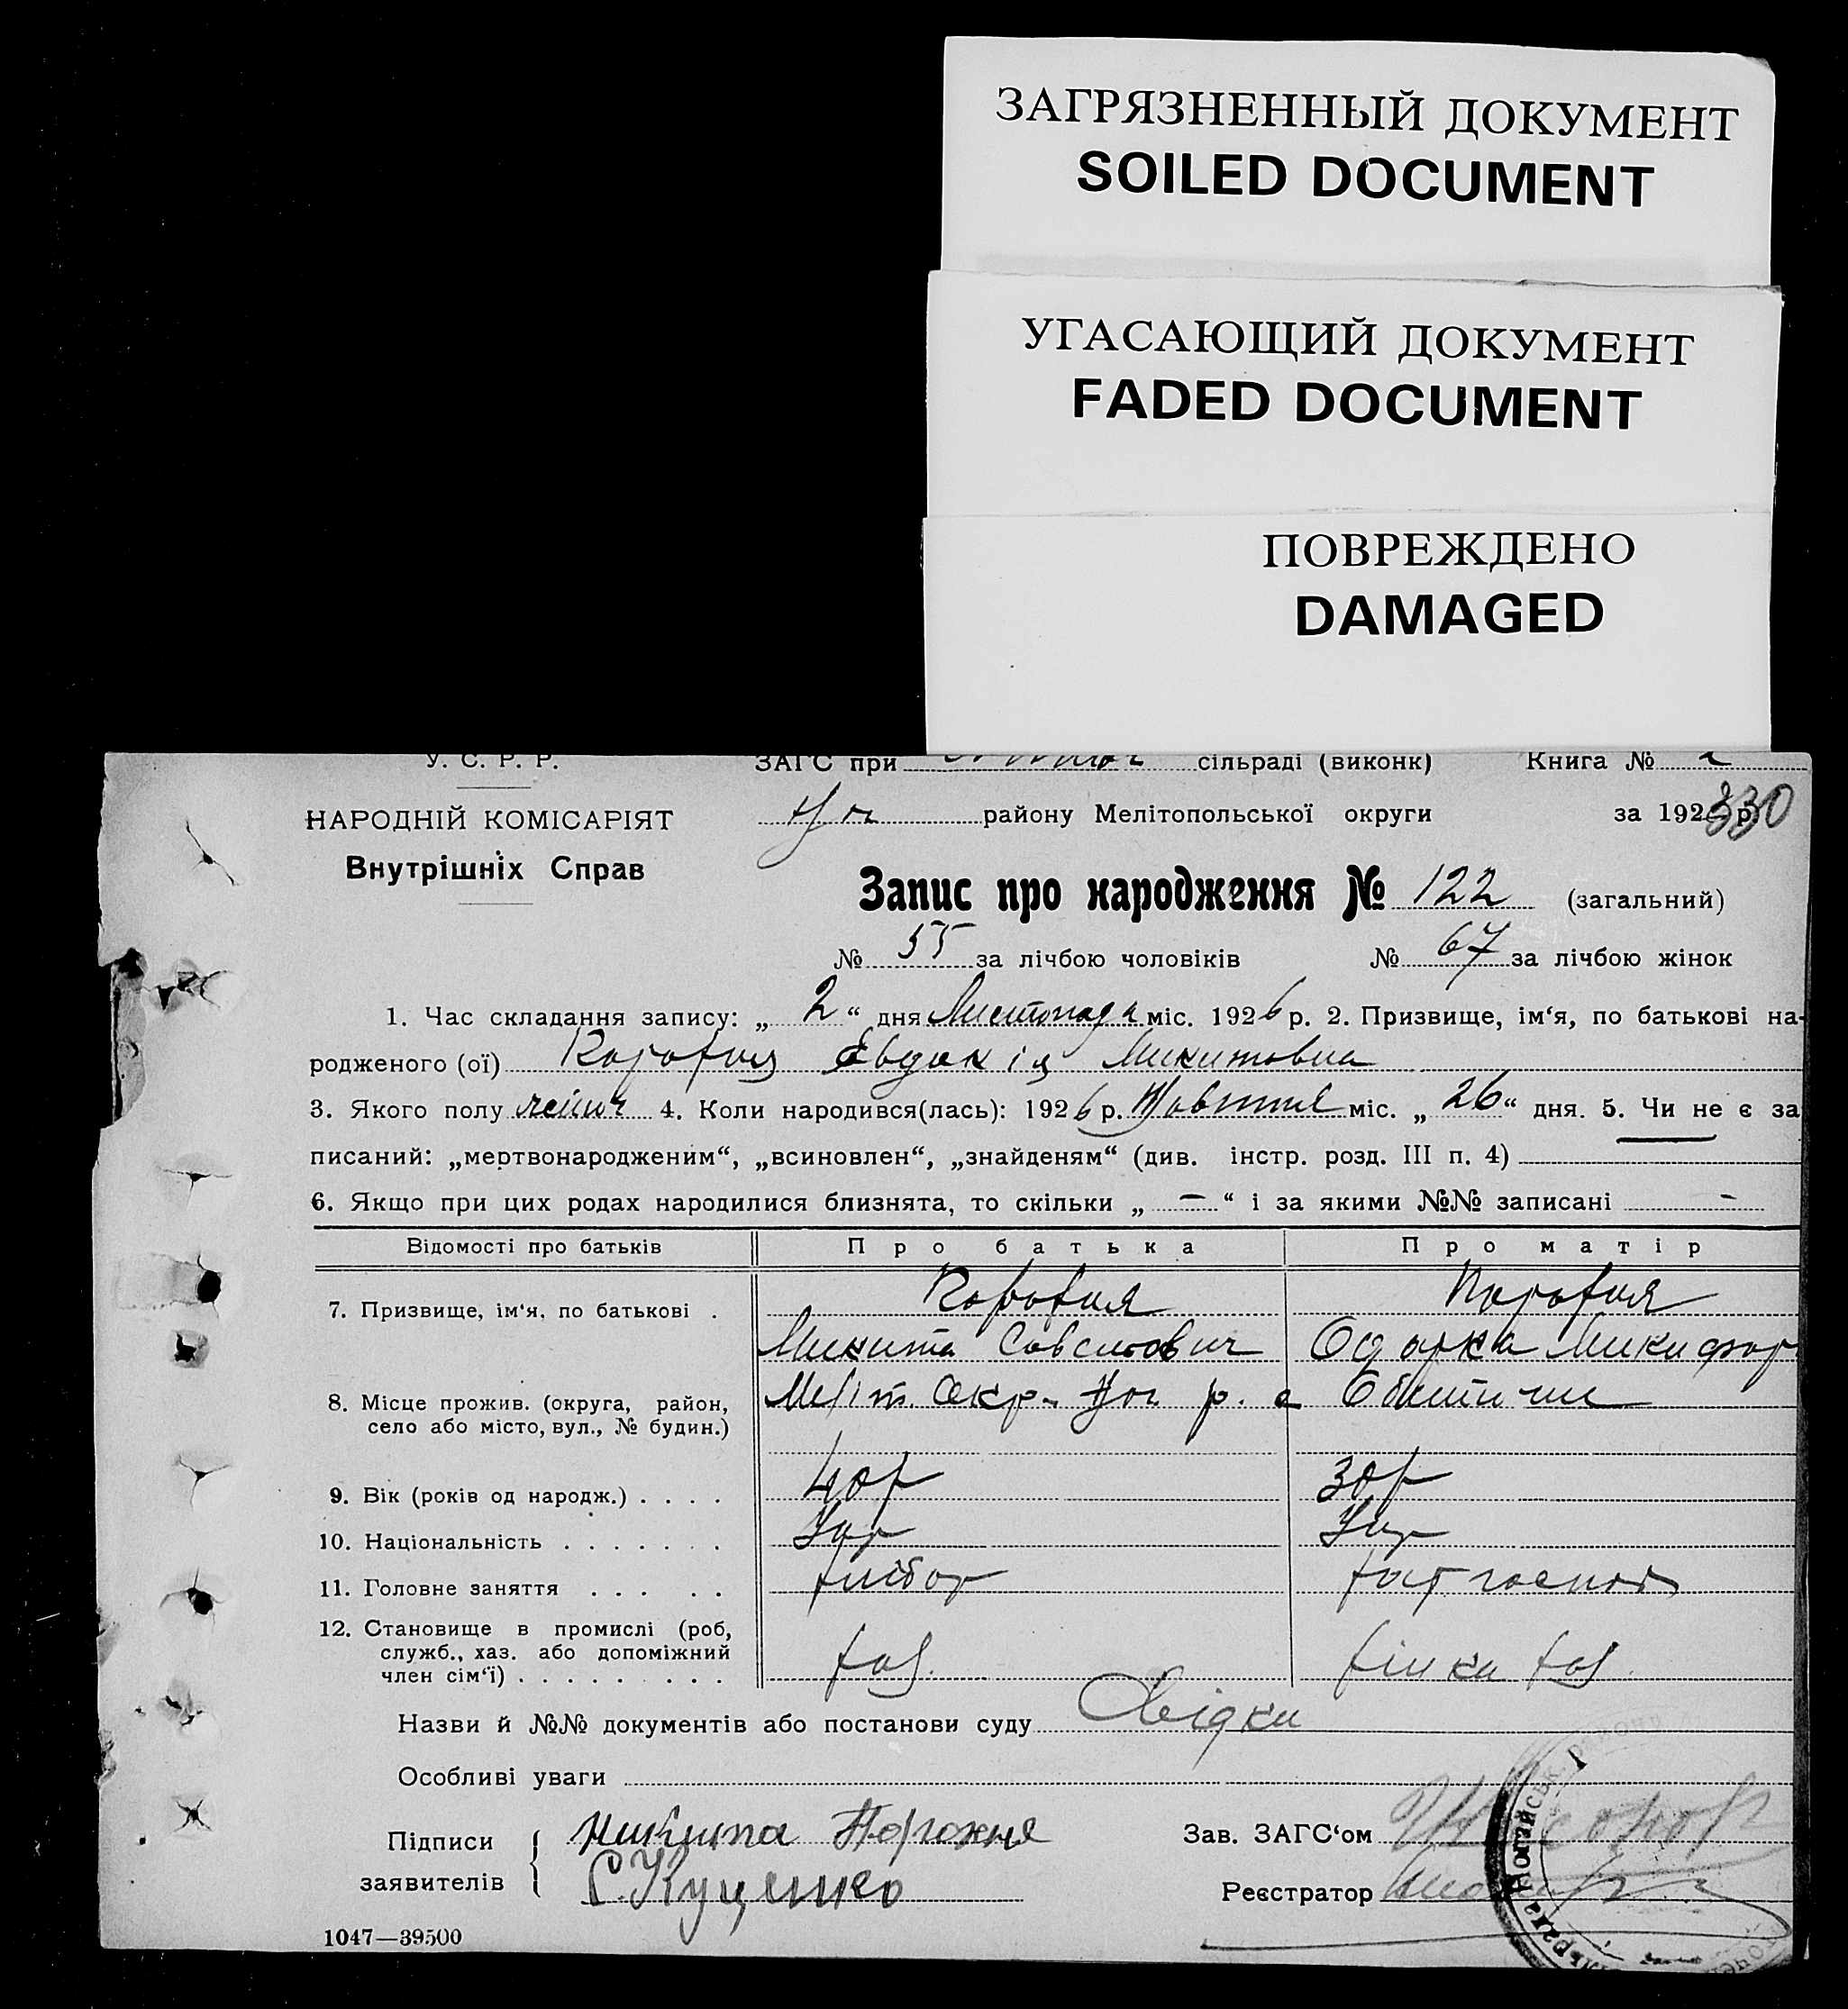 ЗАГРЯЗНЕННЫЙ ДОКУМЕНТ
SOILED DOCUMENT
УГАСАЮЩИЙ ДОКУМЕНТ
FADED DOCUMENT
ПОВРЕЖДЕНО
DAMAGED
У. С. Р. Р.
ЗАГС при сільраді (виконк) Книга №
НАРОДНІЙ КОМІСАРІЯТ
району Мелітопольської округи за 192 р. 330
Внутрішніх Справ
Запис про народження № 122 (загальний)
№ 55 за лічбою чоловіків № 67 за лічбою жінок
1. Час складання запису: „ 2 “ дня Листопада міс. 1926 р. 2. Призвище, ім‘я, по батькові на-
родженого (ої) Євдокія Микитовна
3. Якого полу 4. Коли народився(лась): 1926 р. Жовтня міс. „ 26 “ дня. 5. Чи не є за
писаний: „мертвонародженим“, „всиновлен“, „знайденям“ (див. інстр. розд. III п. 4)
6. Якщо при цих родах народилися близнята, то скільки „ — “ і за якими №№ записані —
Відомості про батьків Про батька Про матір
7. Призвище, ім‘я, по батькові .
Микита Одарка Микифор
8. Місце прожив. (округа, район, Меліт. Окр. р. с
село або місто, вул., № будин.)
9. Вік (років од народж.) . . . . 40 р 30 р
10. Національність . . . . . . . Укр Укр
11. Головне заняття . . . . . хлібор
12. Становище в промислі (роб,
служб., хаз. або допоміжний
член сім‘ї) . . . . . . . . . хаз. жінка хаз
Назви й №№ документів або постанови суду Свідки
Особливі уваги
Підписи Никита Порожня Зав. ЗАГС‘ом
заявителів С. Куценко Реєстратор
1047—39500